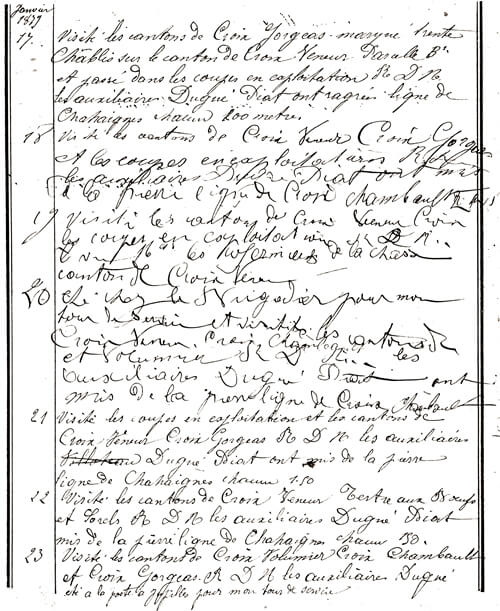 Janvier
1879
17. Visité les cantons de Croix Gorgeas marqué trente
Châblis sur le canton de Croix Veneur Parcelle B
et passé dans les coupes en exploitation R D N
les auxiliaires Dugué Diat ont ragréé ligne de
Chahaignes chacun 200 metres
18 Visité les cantons de Croix Veneur Croix Gorgeas
et les coupes en exploitations R D N
les auxiliaires Dugué Diat ont mis
de la pierre ligne de Croix Chambault
19 Visité les cantons de Croix Veneur Croix
les coupes en exploitation R D N.
de la chasse
canton de Croix Veneur
20 été chez le Brigadier pour mon
tour de service et visité les cantons de
Croix Veneur, Croix Chambault
et Volumier R D N. les
auxiliaires Dugué Diat ont
mis de la pierre ligne de Croix Chambault
21 Visité les coupes en exploitation et les cantons de
Croix Veneur Croix Gorgeas R D N les auxiliaires
Dugué Diat ont mis de la pierre
ligne de Chahaignes chacun 1.50
22 Visité les cantons de Croix Veneur Tertre aux
et R D N les auxiliaires Dugué Diat
mis de la pierre ligne de Chahaignes chacun 50.
23 Visité les cantons de Croix Volumier Croix Chambault
et Croix Gorgeas. R D N les auxiliaires Dugué
été a la poste à Jupilles pour mon tour de service